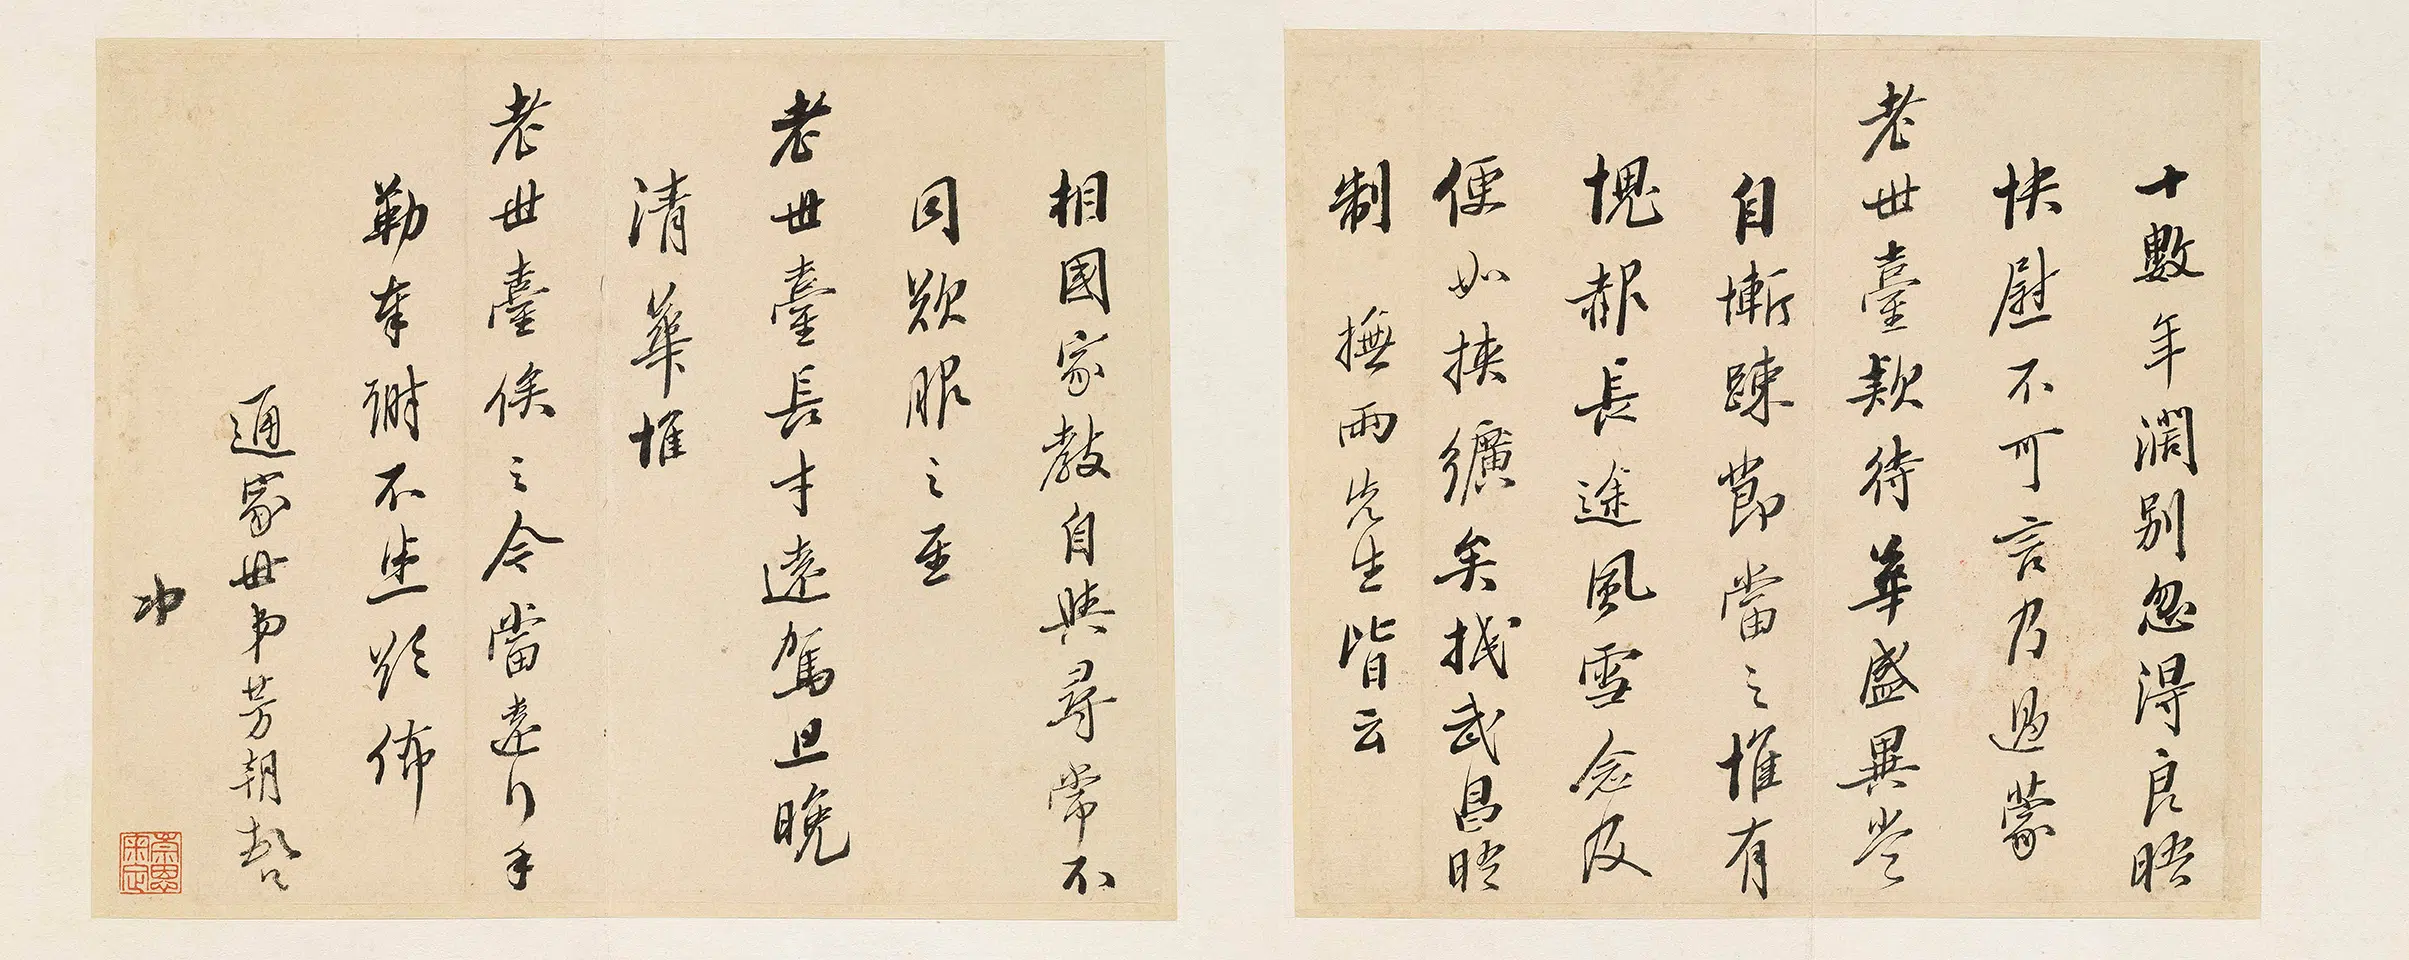 十數年濶别忽得良晤
快慰不可言乃過蒙
老世臺欵待華盛異常
自慚踈節當之惟有
愧赧長途風雪念及
便如挾纊矣抵武昌晤
制 撫兩先生皆云
相國家教自與尋常不
同歎服之至
老世臺長才遠駕旦晚
清華惟
老世臺俟之今當遠行手
勒奉謝不盡欲佈
通家世弟芳朝
冲